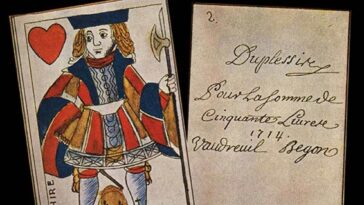 HIRE
2.
Duplessis
Pour La Somme de
Cinquante Liurese
1714.
Vaudreuil Begon